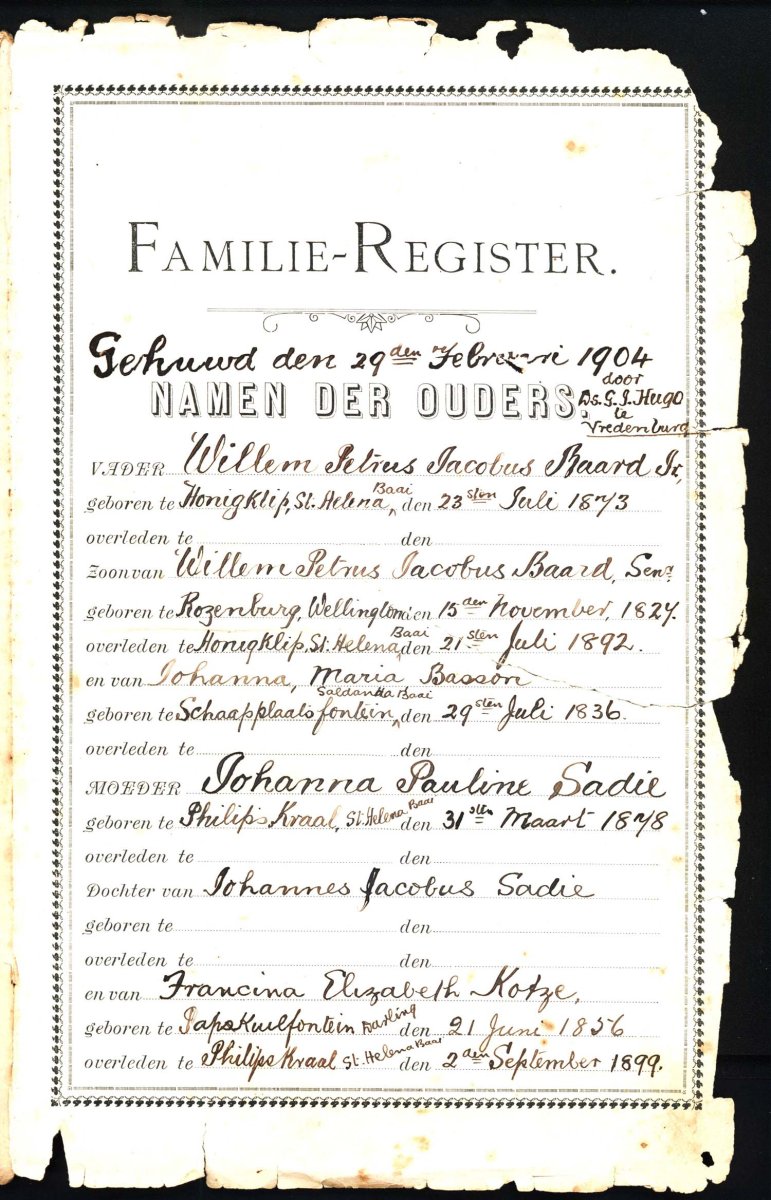 FAMILIE-REGISTER.
Gehuwd den 29den Februari 1904
door
Ds. G. J. Hugo
te
Vredenburg
NAMEN DER OUDERS.
VADER Willem Petrus Jacobus Baard Jr,
geboren te Honigklip, St. Helena Baai den 23sten Juli 1873
overleden te den
Zoon van Willem Petrus Jacobus Baard, Senr.
geboren te Rozenburg, Wellington den 15den November, 1827.
overleden te Honigklip, St. Helena Baai den 21sten Juli 1892.
en van Johanna, Maria Basson
geboren te Schaapplaatsfontein Saldanha Baai den 29sten Juli 1836.
overleden te den
MOEDER Johanna Pauline Sadie
geboren te Philips Kraal, St. Helena Baai den 31sten Maart 1878
overleden te den
Dochter van Johannes Jacobus Sadie
geboren te den
overleden te den
en van Francina Elizabeth Kotze,
geboren te Papskuilfontein Darling den 21 Juni 1856
overleden te Philips Kraal St. Helena Baai den 2den September 1899.